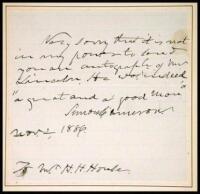 Very sorry that it is not
in my power to send
you an autograph of Mr
Lincoln. He was indeed
"a great and a good man"
Simon Cameron
Nov 2, 1886
To Mr H. H. Houks.